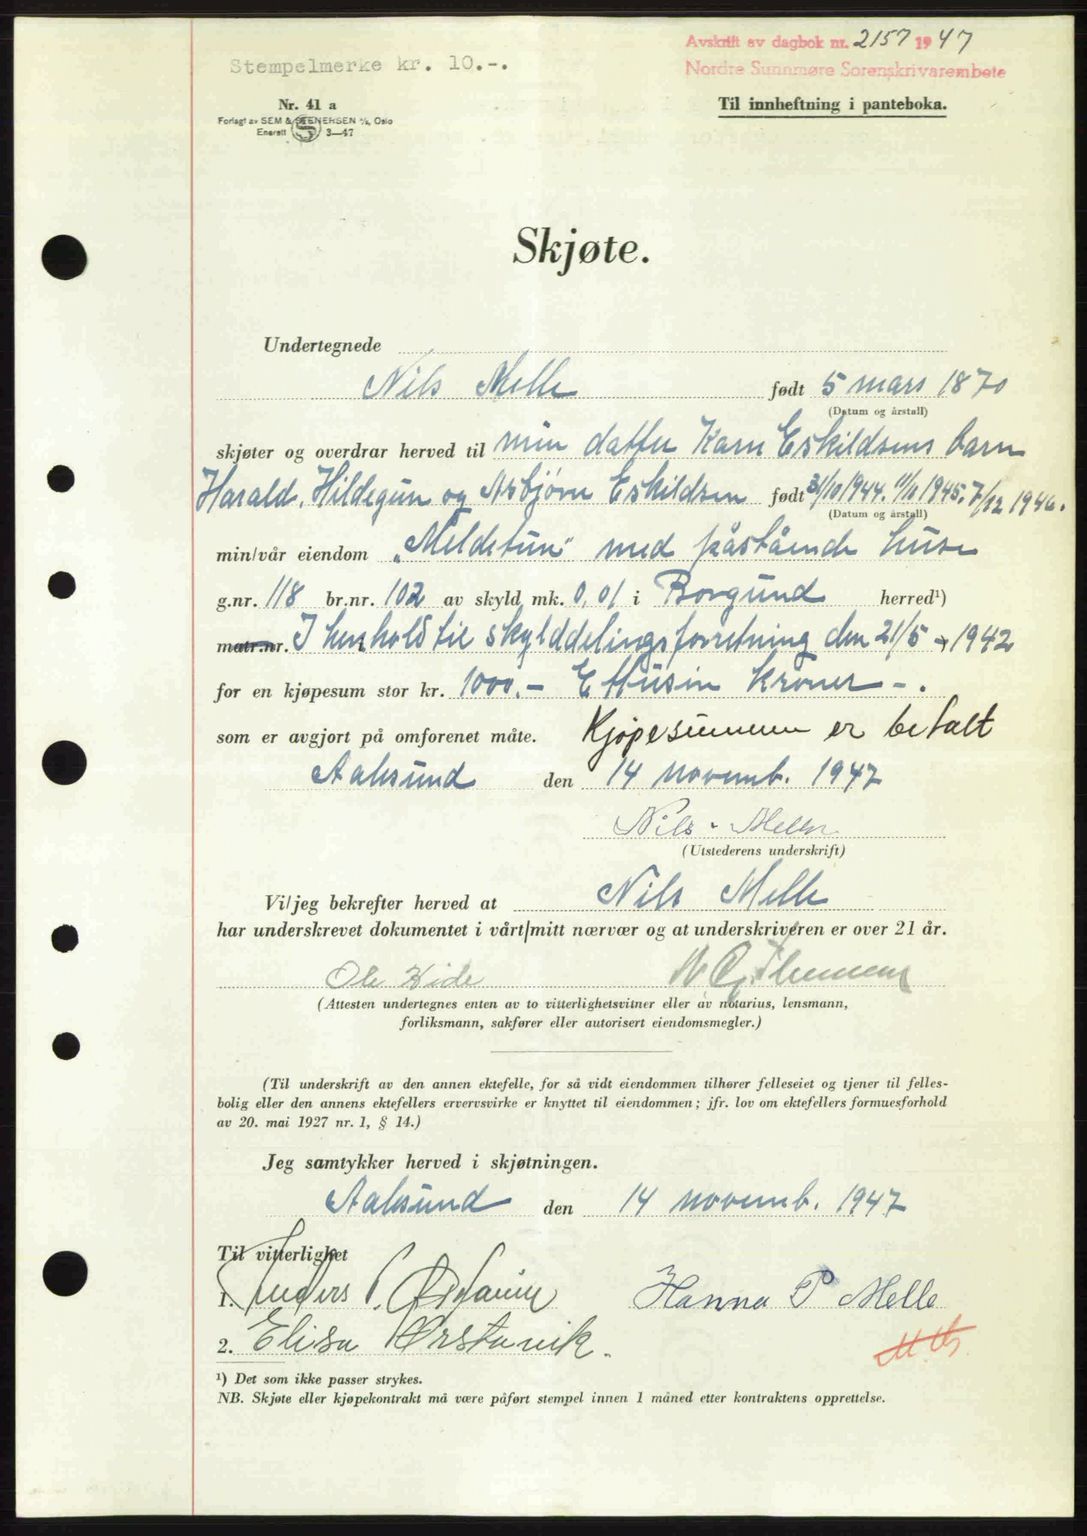 Avskrift av dagbok nr. 2157 1947
Stempelmerke kr. 10.-.
Nordre Sunnmøre Sorenskrivarembete
Nr. 41 a
Til innheftning i panteboka.
Forlagt av SEM & STENERSEN A/S, Oslo
Enerett 3—47
Skjøte.
Undertegnede
Nils Melle født 5 mars 1870
(Datum og årstall)
skjøter og overdrar herved til min datter Karn Eskildsens barn
Harald, Hildegun og Asbjørn Eskildsen født 31/10 1944. 11/11 1945. 7/12 1946.
(Datum og årstall)
min/vår eiendom "Meldetun" med påstående huse
g.nr. 118 br.nr. 102 av skyld mk. 0,01 i Borgund herred¹)
matr.nr. I henhold til skylddelingsforretning den 21/5 - 1942
for en kjøpesum stor kr. 1000.- Ettusin kroner -.
som er avgjort på omforenet måte. Kjøpesummen er betalt
Aalesund den 14 novemb. 1947
Nils Melle
(Utstederens underskrift)
Vi/jeg bekrefter herved at Nils Melle
har underskrevet dokumentet i vårt/mitt nærvær og at underskriveren er over 21 år.
Ole Hide
(Attesten undertegnes enten av to vitterlighetsvitner eller av notarius, lensmann,
forliksmann, sakfører eller autorisert eiendomsmegler.)
(Til underskrift av den annen ektefelle, for så vidt eiendommen tilhører felleseiet og tjener til felles-
bolig eller den annens ektefellers ervervsvirke er knyttet til eiendommen; jfr. lov om ektefellers formuesforhold
av 20. mai 1927 nr. 1, § 14.)
Jeg samtykker herved i skjøtningen.
Aalesund den 14 novemb. 1947
Til vitterlighet
1. Anders P. Hanna P Melle
2. Elisa Ørstavik.
¹) Det som ikke passer strykes.
NB. Skjøte eller kjøpekontrakt må være påført stempel innen 1 måned etter kontraktens opprettelse.